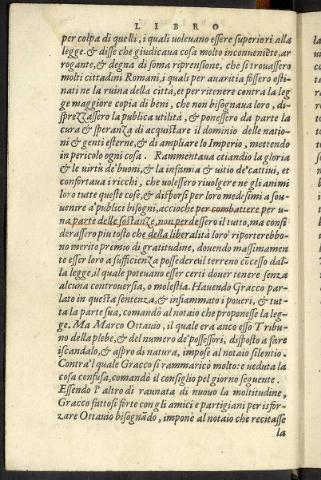 LIBRO
per colpa di quelli, i quali voleuano essere superiori alla
legge. & disse che giudicaua cosa molto inconueniēte, ar
rogante, & degna di soma riprensione, che si trouassero
molti cittadini Romani, i quali per auaritia fossero osti-
nati ne la ruina della citta, et per ritenere contra la leg
ge maggiore copia di beni, che non bisognaua loro, di-
sprezzassero la publica utilità, & ponessero da parte la
cura & speranza di acquistare il dominio delle natio-
ni & genti esterne, & di ampliare lo Imperio, mettendo
in pericolo ogni cosa. Rammentaua etiandio la gloria
& le uirtù de' buoni, & la infamia & uitio de' cattiui, et
confortaua i ricchi, che uolessero riuolgere ne gli animi
loro tutte queste cose, & disporsi per loro medesimi a sou
uenire a' publici bisogni, accioche per combattere per u-
na parte delle sostanze, non perdessero il tutto, ma consi
derassero piu tosto che della liberalità loro riporterebbo-
no merito premio di gratitudine, douendo massimamen
te esser loro a sufficienza possedere eil terreno cōcesso dal-
la legge, il quale poteuano esser certi douer tenere senza
alcuna controuersia, o molestia. Hauendo Gracco par-
lato in questa sentenza, & infiammati i poueri, & tut-
ta la parte sua, comandò al notaio che proponesse la leg-
ge. Ma Marco Ottauio, il quale era anco esso Tribu-
no della plebe, & del numero de' possessori, disposto a fare
iscandalo, & aspro di natura, impose al notaio silentio.
Contra'l quale Gracco si rammaricò molto: e ueduta la
cosa confusa, comandò il consiglio pel giorno seguente.
Essendo l'altro dì raunata di nuouo la moltitudine,
Gracco fattosi forte con gli amici e partigiani per isfor-
zare Ottauio bisognādo, impone al notaio che recitasse
la